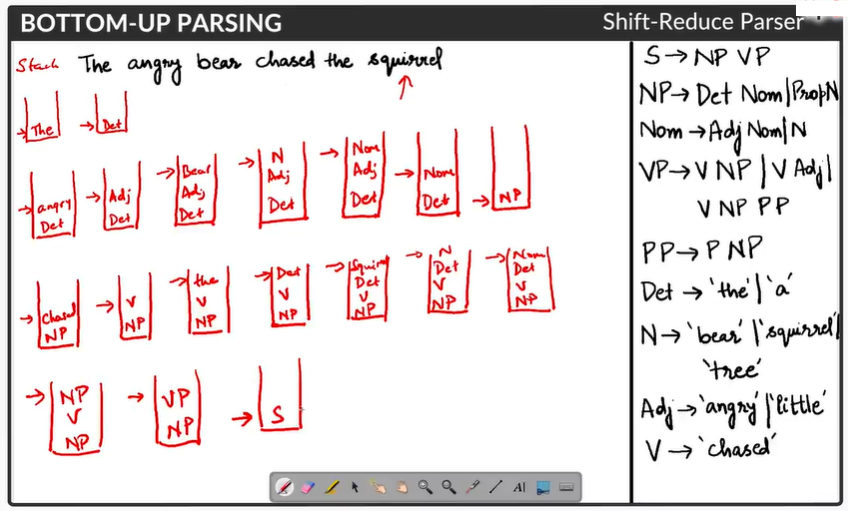 BOTTOM-UP PARSING
Shift-Reduce Parser
Stack The angry bear chased the squirrel
The Det
angry
Det
Adj
Det
Bear
Adj
Det
N
Adj
Det
Nom
Adj
Det
Nom
Det
NP
Chased
NP
V
NP
the
V
NP
Det
V
NP
Squirrel
Det
V
NP
N
Det
V
NP
Nom
Det
V
NP
NP
V
NP
VP
NP
S
S → NP VP
NP → Det Nom | PropN
Nom → Adj Nom | N
VP → V NP | V Adj |
V NP PP
PP → P NP
Det → 'the' | 'a'
N → 'bear' | 'squirrel' |
'tree'
Adj → 'angry' | 'little'
V → 'chased'
AI